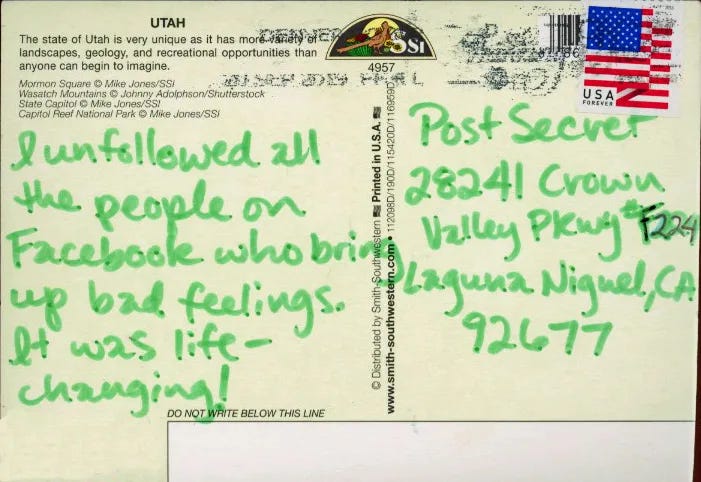 UTAH
The state of Utah is very unique as it has more variety of
landscapes, geology, and recreational opportunities than
anyone can begin to imagine.
Mormon Square © Mike Jones/SSI
Wasatch Mountains © Johnny Adolphson/Shutterstock
State Capitol © Mike Jones/SSI
Capitol Reef National Park © Mike Jones/SSI
SSI
4957
USA
FOREVER
I unfollowed all
the people on
Facebook who bring
up bad feelings.
It was life-
changing!
© Distributed by Smith-Southwestern Printed in U.S.A.
www.smith-southwestern.com • 112098D/190D/115420D/116959D
Post Secret
28241 Crown
Valley PKwy #F224
Laguna Niguel, CA
92677
DO NOT WRITE BELOW THIS LINE